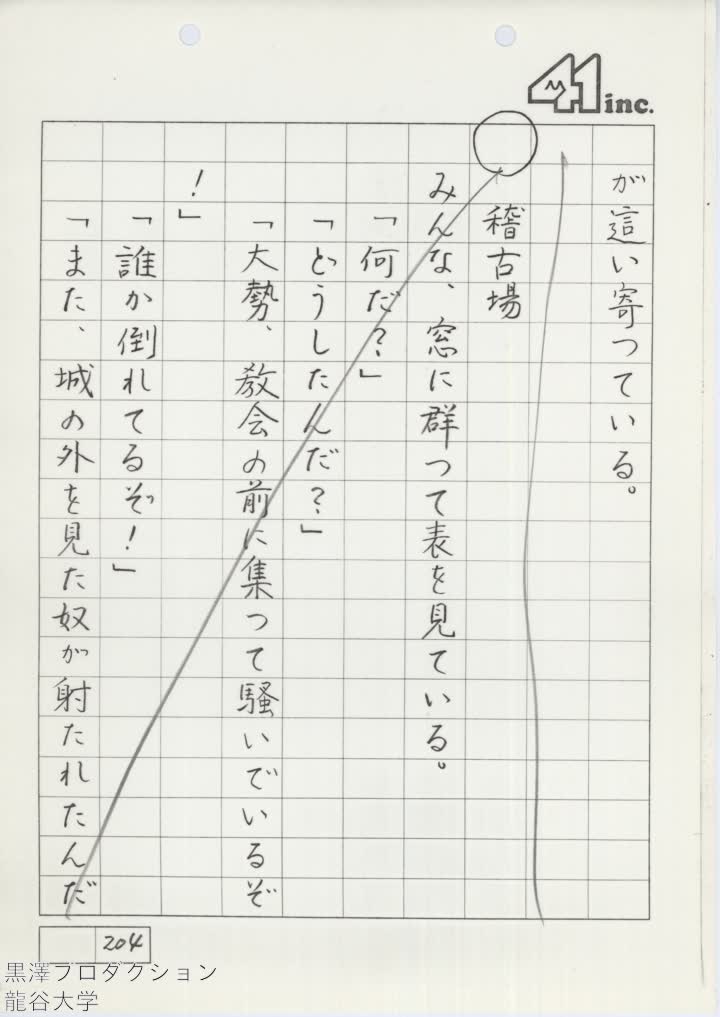 41 inc.
が這い寄つている。
稽古場
みんな、窓に群つて表を見ている。
「何だ？」
「どうしたんだ？」
「大勢、教会の前に集つて騒いでいるぞ
！」
「誰か倒れてるぞ！」
「また、城の外を見た奴が射たれたんだ
204
黒澤プロダクション
龍谷大学